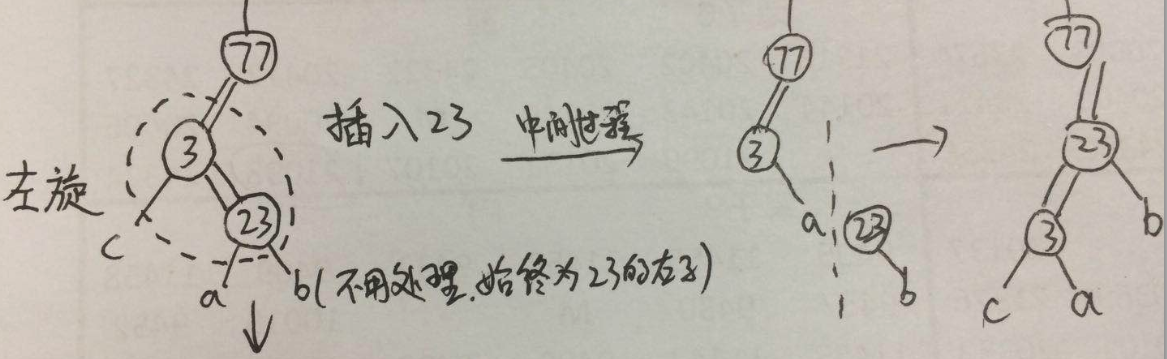 77
3
23
左旋
c
a
b(不用处理,始终为23的右子)
插入23 中间过程
77
3
a
23
b
77
23
3
b
c
a